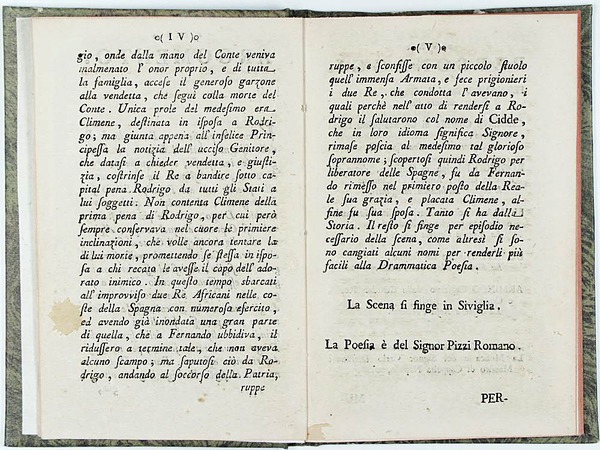 ( IV )
gio, onde dalla mano del Conte veniva
inalmenato l' onor proprio, e di tutta
la famiglia, accese il generoso garzone
alla vendetta, che seguì colla morte del
Conte. Unica prole del medesimo era
Climene, destinata in isposa a Rodri-
go; ma giunta appena all' infelice Prin-
cipessa la notizia dell' ucciso Genitore,
che datasi a chieder vendetta, e giusti-
zia, costrinse il Re a bandire sotto ca-
pital pena Rodrigo da tutti gli Stati a
lui soggetti. Non contenta Climene della
prima pena di Rodrigo, per cui però
sempre conservava nel cuore le primiere
inclinazioni, che volle ancora tentare la
di lui morte, promettendo se stessa in ispo-
sa a chi recato le avesse il capo dell' ado-
rato inimico. In questo tempo sbarcati
all' improvviso due Re Africani nelle co-
ste della Spagna con numeroso esercito,
ed avendo già inondata una gran parte
di quella, che a Fernando ubbidiva, il
ridussero a termine tale, che non aveva
alcuno scampo; ma saputosi ciò da Ro-
drigo, andando al soccorso della Patria,
ruppe
( V )
ruppe, e sconfisse con un piccolo stuolo
quell' immensa Armata, e fece prigionieri
i due Re, che condotta l' avevano, i
quali perchè nell' atto di rendersi a Ro-
drigo il salutarono col nome di Cidde,
che in loro idioma significa Signore,
rimase poscia al medesimo tal glorioso
soprannome; scopertosi quindi Rodrigo per
liberatore delle Spagne, fu da Fernan-
do rimesso nel primiero posto della Rea-
le sua grazia, e placata Climene, al-
fine fu sua sposa. Tanto si ha dalla
Storia. Il resto si finge per episodio ne-
cessario della scena, come altresì si so-
no cangiati alcuni nomi per renderli più
facili alla Drammatica Poesia.
La Scena si finge in Siviglia.
La Poesia è del Signor Pizzi Romano.
PER-